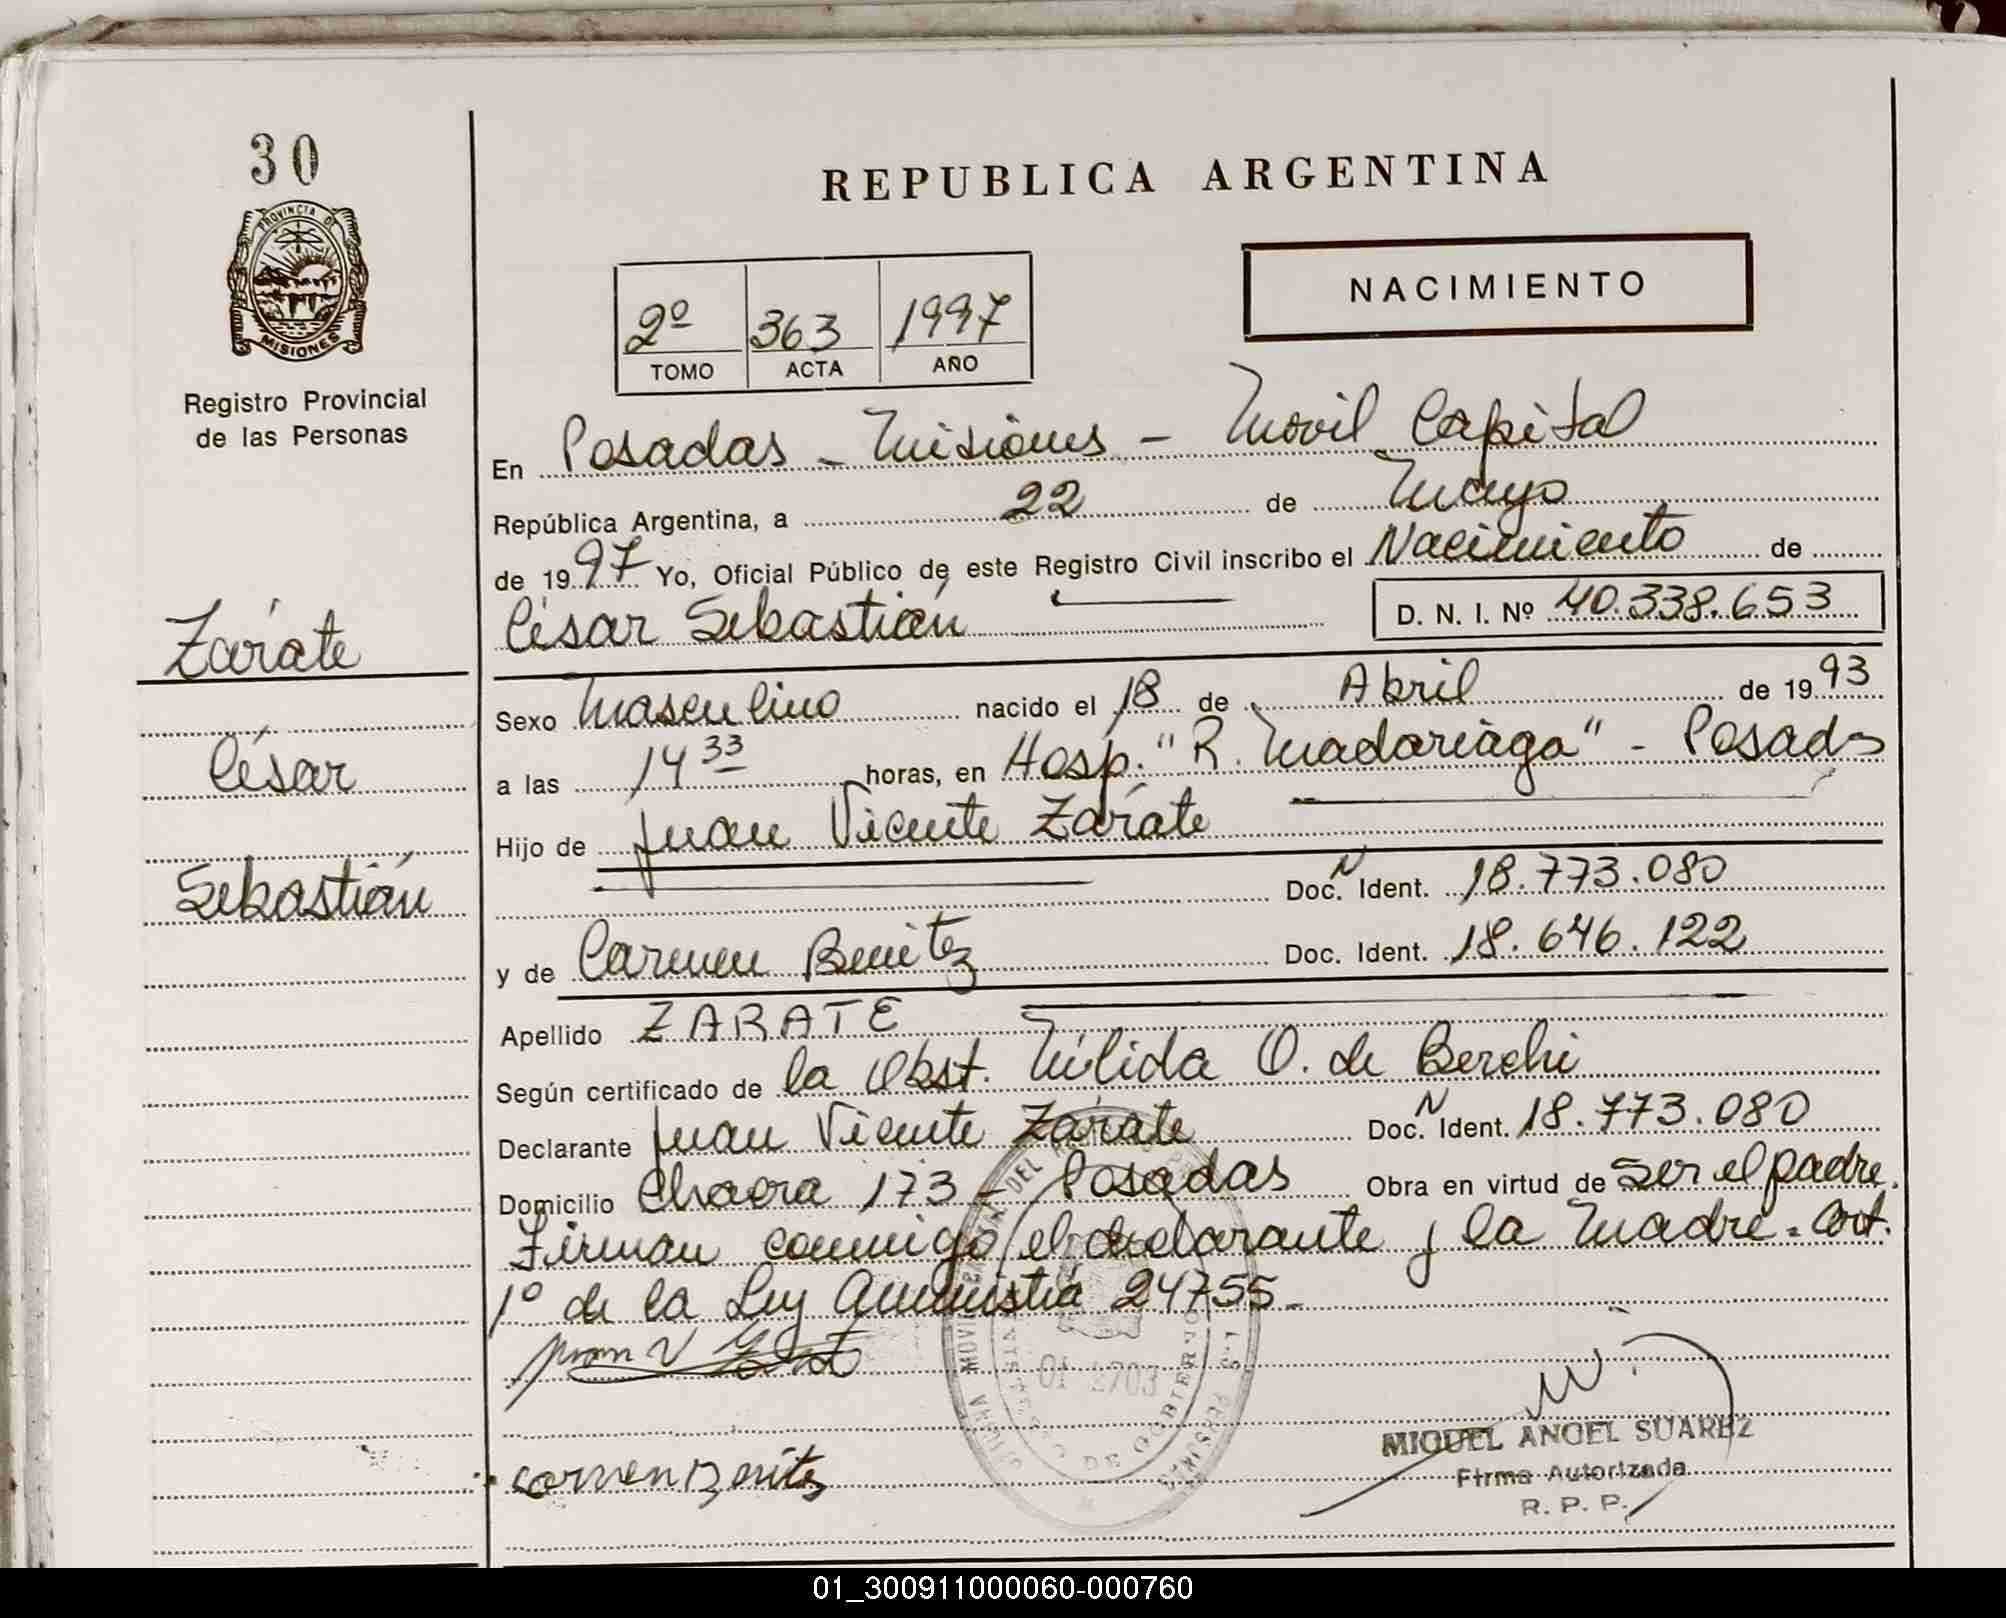 30
REPUBLICA ARGENTINA
PROVINCIA DE
MISIONES
NACIMIENTO
2º 363 1997
TOMO ACTA AÑO
Registro Provincial
de las Personas
En Posadas - Misiones - Móvil Capital
República Argentina, a 22 de Mayo
de 1997 Yo, Oficial Público de este Registro Civil inscribo el Nacimiento de
César Sebastián D. N. I. Nº 40.338.653
Zárate
Sexo Masculino nacido el 18 de Abril de 1993
César
a las 14 33 horas, en Hosp. "R. Madariaga" - Posadas
Hijo de Juan Vicente Zárate
Sebastián
Doc. N Ident. 18.773.080
y de Carmen Benitez Doc. Ident. 18.646.122
Apellido ZARATE
Según certificado de la Obst. Mélida O. de Berchi
Declarante Juan Vicente Zárate Doc. N Ident. 18.773.080
Domicilio Chacra 173 - Posadas Obra en virtud de ser el padre.
Firman conmigo el declarante y la Madre. Art.
1º de la Ley Amnistia 24755-
Juan V Zarate
Carmen Benitez
MIGUEL ANGEL SUAREZ
Firma Autorizada
R. P. P.
01_300911000060-000760